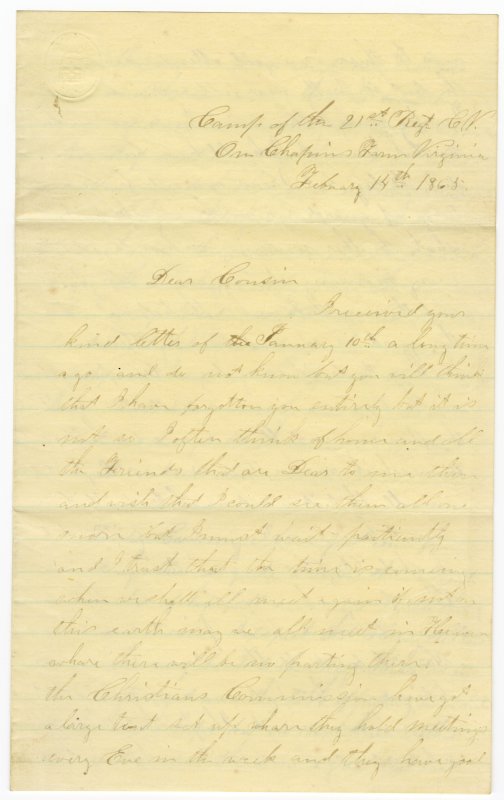 Camp of the 21st Regt C.V.
On Chapins Farm Virginia
February 14th 1865.
Dear Cousin
I received your
kind letter of the January 10th a long time
ago and do not know but you will think
that I have forgotten you entirely but it is
not so I often think of home and all
the Friends that are Dear to me there
and wish that I could see them all once
more but I must wait patiently
and I trust that the time is coming
when we shall all meet again if not on
this earth may we all meet in Heaven
where there will be no parting there
the Christians Commission have got
a large tent set up where they hold meetings
every Eve in the week and they have good